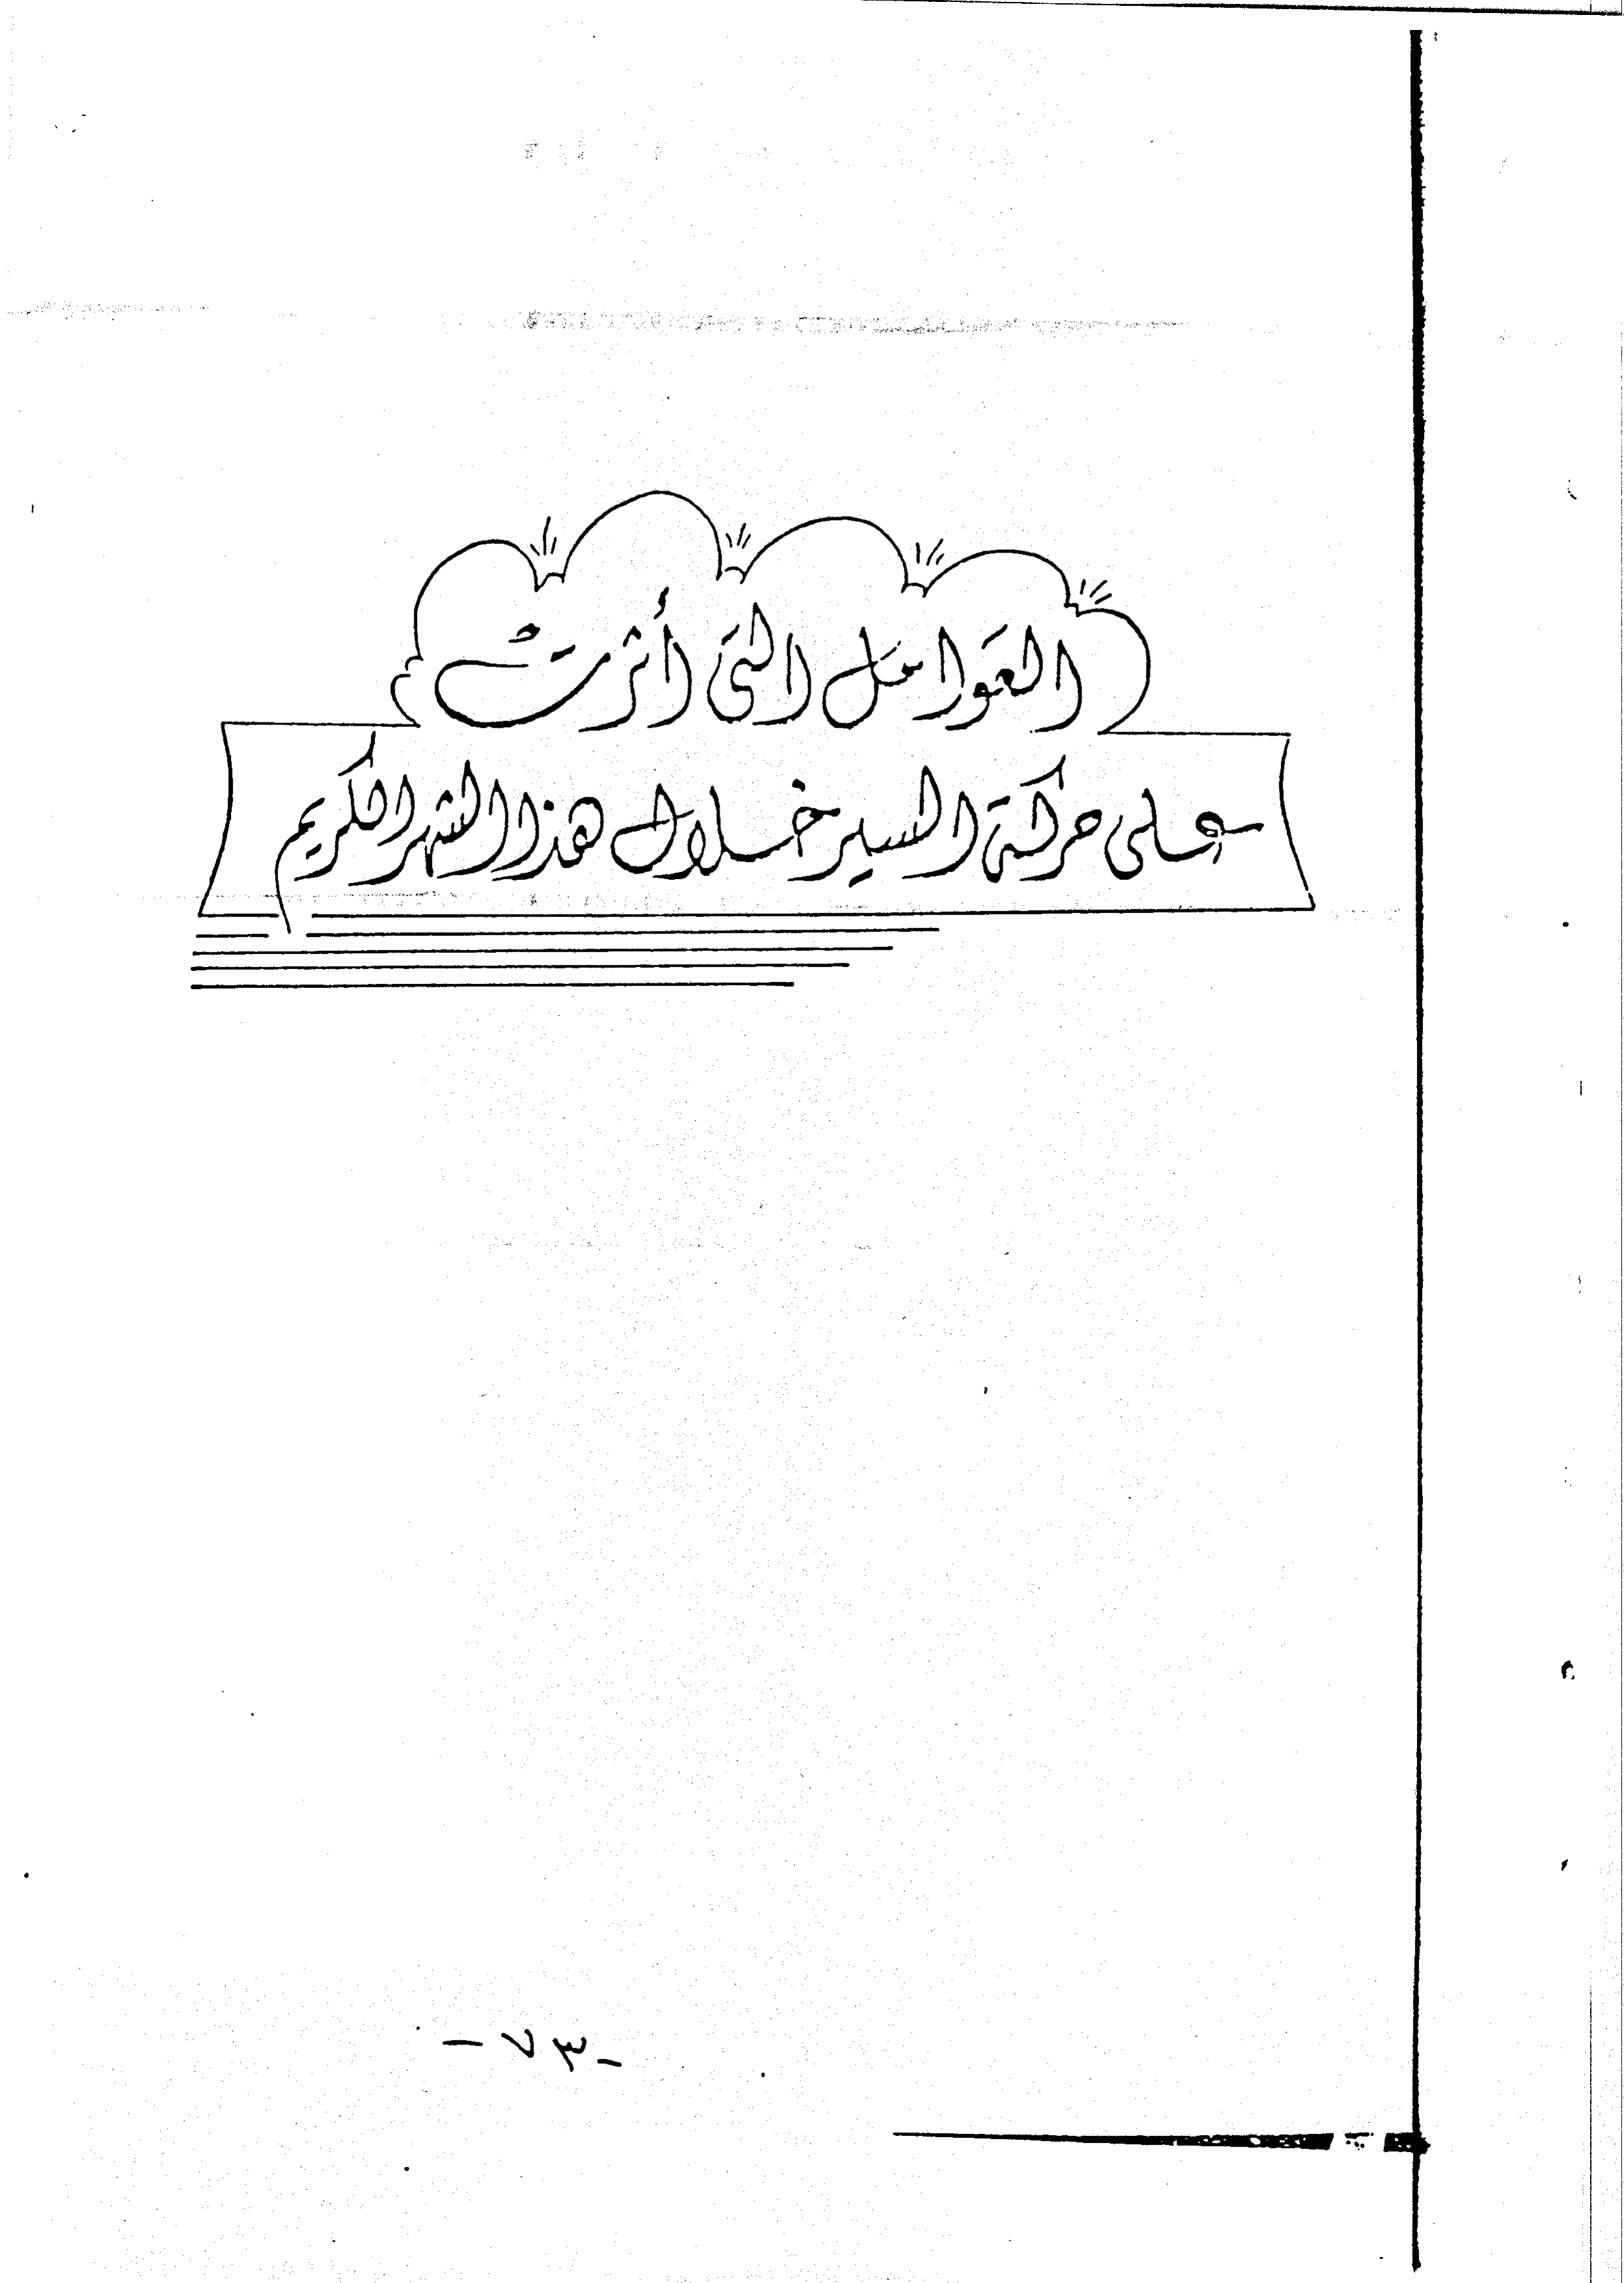 العوامل التي أثرت
على حركة السير خلال هذا الشهر الكريم
- ٧٣ -